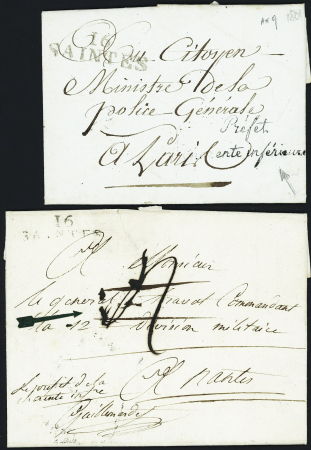 an 9 1801
16
SAINTES
Au Citoyen
Ministre de la
police Générale
Préfet
A Paris
ente inférieure
16
SAINTES
A Monsieur
le général Travot Commandant
la 12 division militaire
A Nantes
Le préfet de la
charente infre